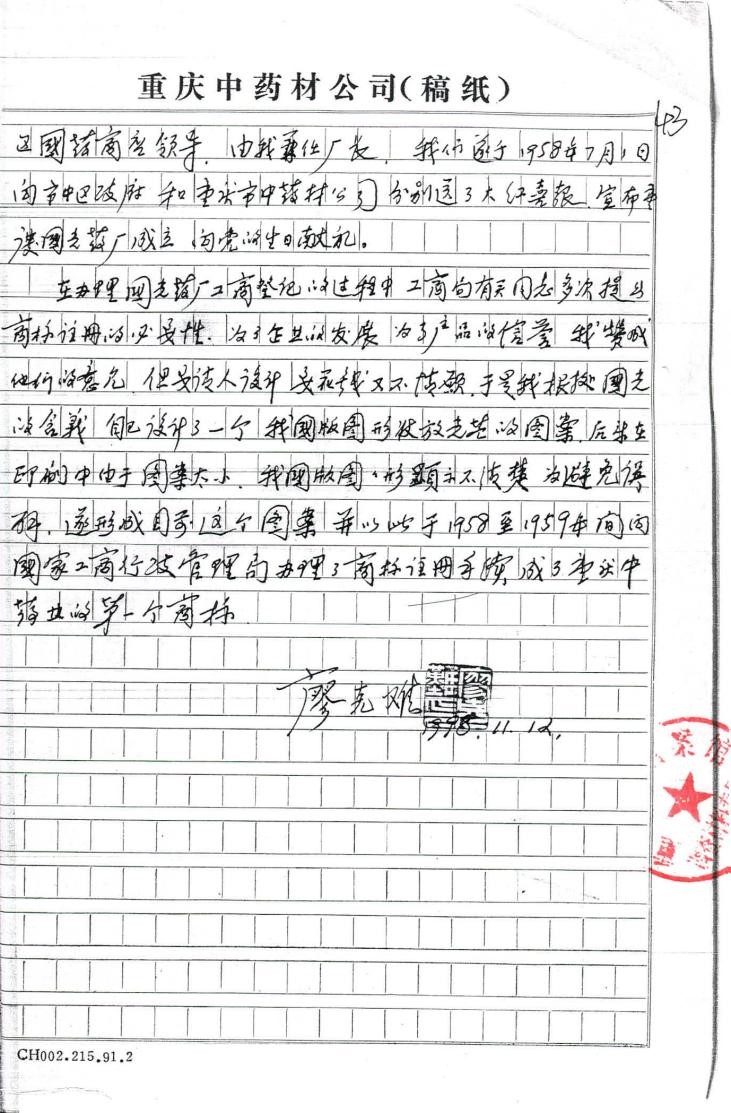 重庆中药材公司(稿纸)
43
区國药商店领导，由我兼任厂长，我们遂于1958年7月1日
向市中区政府和重庆市中药材公司分别送了大红喜报，宣布重
庆國光药厂成立，向党的生日献礼。
在办理國光药厂工商登记的过程中工商局有关同志多次提出
商标注册的必要性，为了企业的发展为了产品的信誉我赞成
他们的意见，但要请人设计要花钱又不情愿，于是我根据國光
的含義自己设计了一个我國版图形状放光芒的图案，后来在
印刷中由于图案太小，我國版图形顯示不清楚为避免误
解，遂形成目前这个图案并以此于1958至1959年间向
國家工商行政管理局办理了商标注册手續，成了重庆中
药业的第一个商标
廖克难
1995.11.12.
CH002.215.91.2